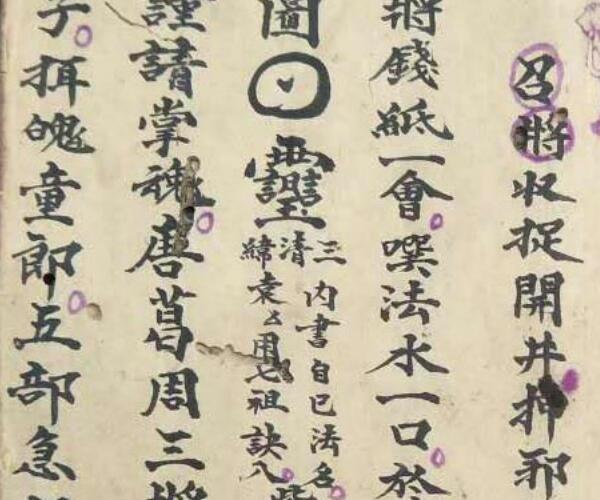 召將収捉開井押邪
將錢紙一會噀法水一口於
圖
三清緯
內書自已法名
用七祖訣八
謹請掌魂唐葛周三將
子挕魄童郎五部急